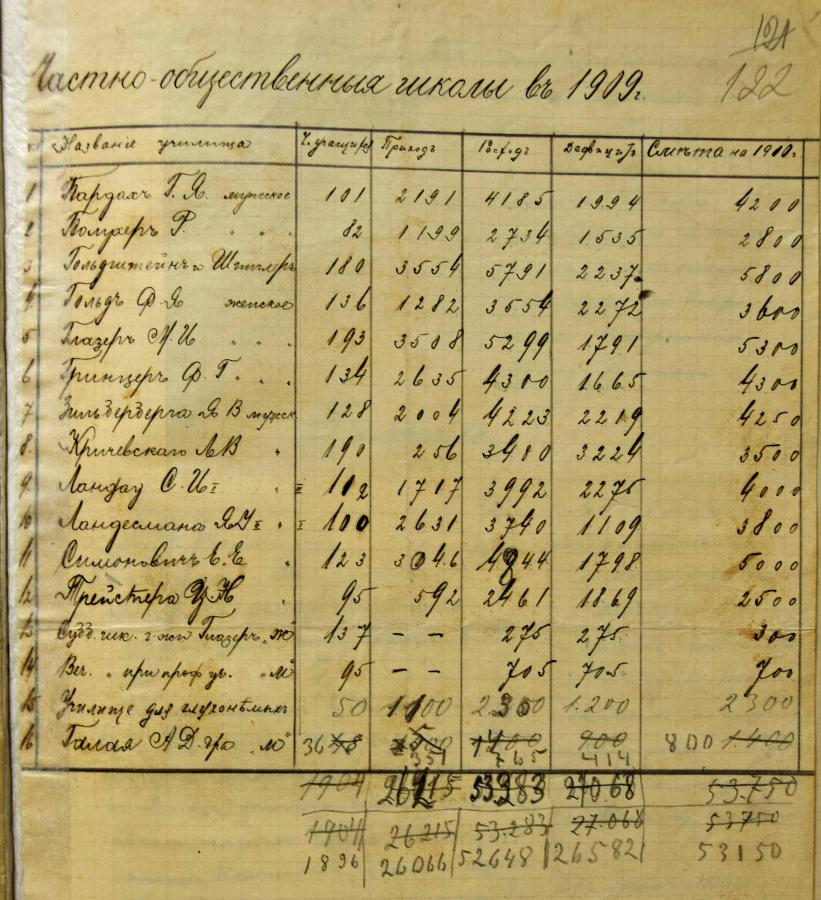 121
122
Частно-общественныя школы въ 1909г.
Названіе училища Ч. учащихся Приходъ Расходъ Дефицитъ Смѣта на 1910г.
1 Бардахъ Г. Я. мужское 101 2191 4185 1994 4200
2 Р. " " 82 1199 2734 1535 2800
3 Гольдштейнъ и 180 3554 5791 2237 5800
4 Гольдъ Ф. Я женское 136 1282 3554 2272 3600
5 Глазеръ М. И " " 193 3508 5299 1791 5300
6 Гринцеръ Ф. Г " " 134 2635 4300 1665 4300
7 Зильберберга Я В мужск 128 2004 4223 2219 4250
8 Кричевскаго Л В " 190 256 3480 3224 3500
9 Ландау С. И I " II 102 1717 3992 2275 4000
10 Ландесмана II " I 100 2631 3740 1109 3800
11 Симоновичъ Е. Е " 123 3046 4844 1798 5000
12 Трейстера Н " 95 592 2461 1869 2500
13 Субб. шк. г-жи Глазеръ "ж" 137 – – 275 275 300
14 Веч. " при проф. уч. "м" 95 – – 705 705 700
15 Училище для глухонѣмыхъ 50 1100 2300 1.200 2300
16 Галая А Д. "м" 36 48 1400 900 800 1.400
351 765 414
1904 26215 53283 27068 53750
1904 26215 53.283 27.068 53750
1896 26066 52648 26582 53150